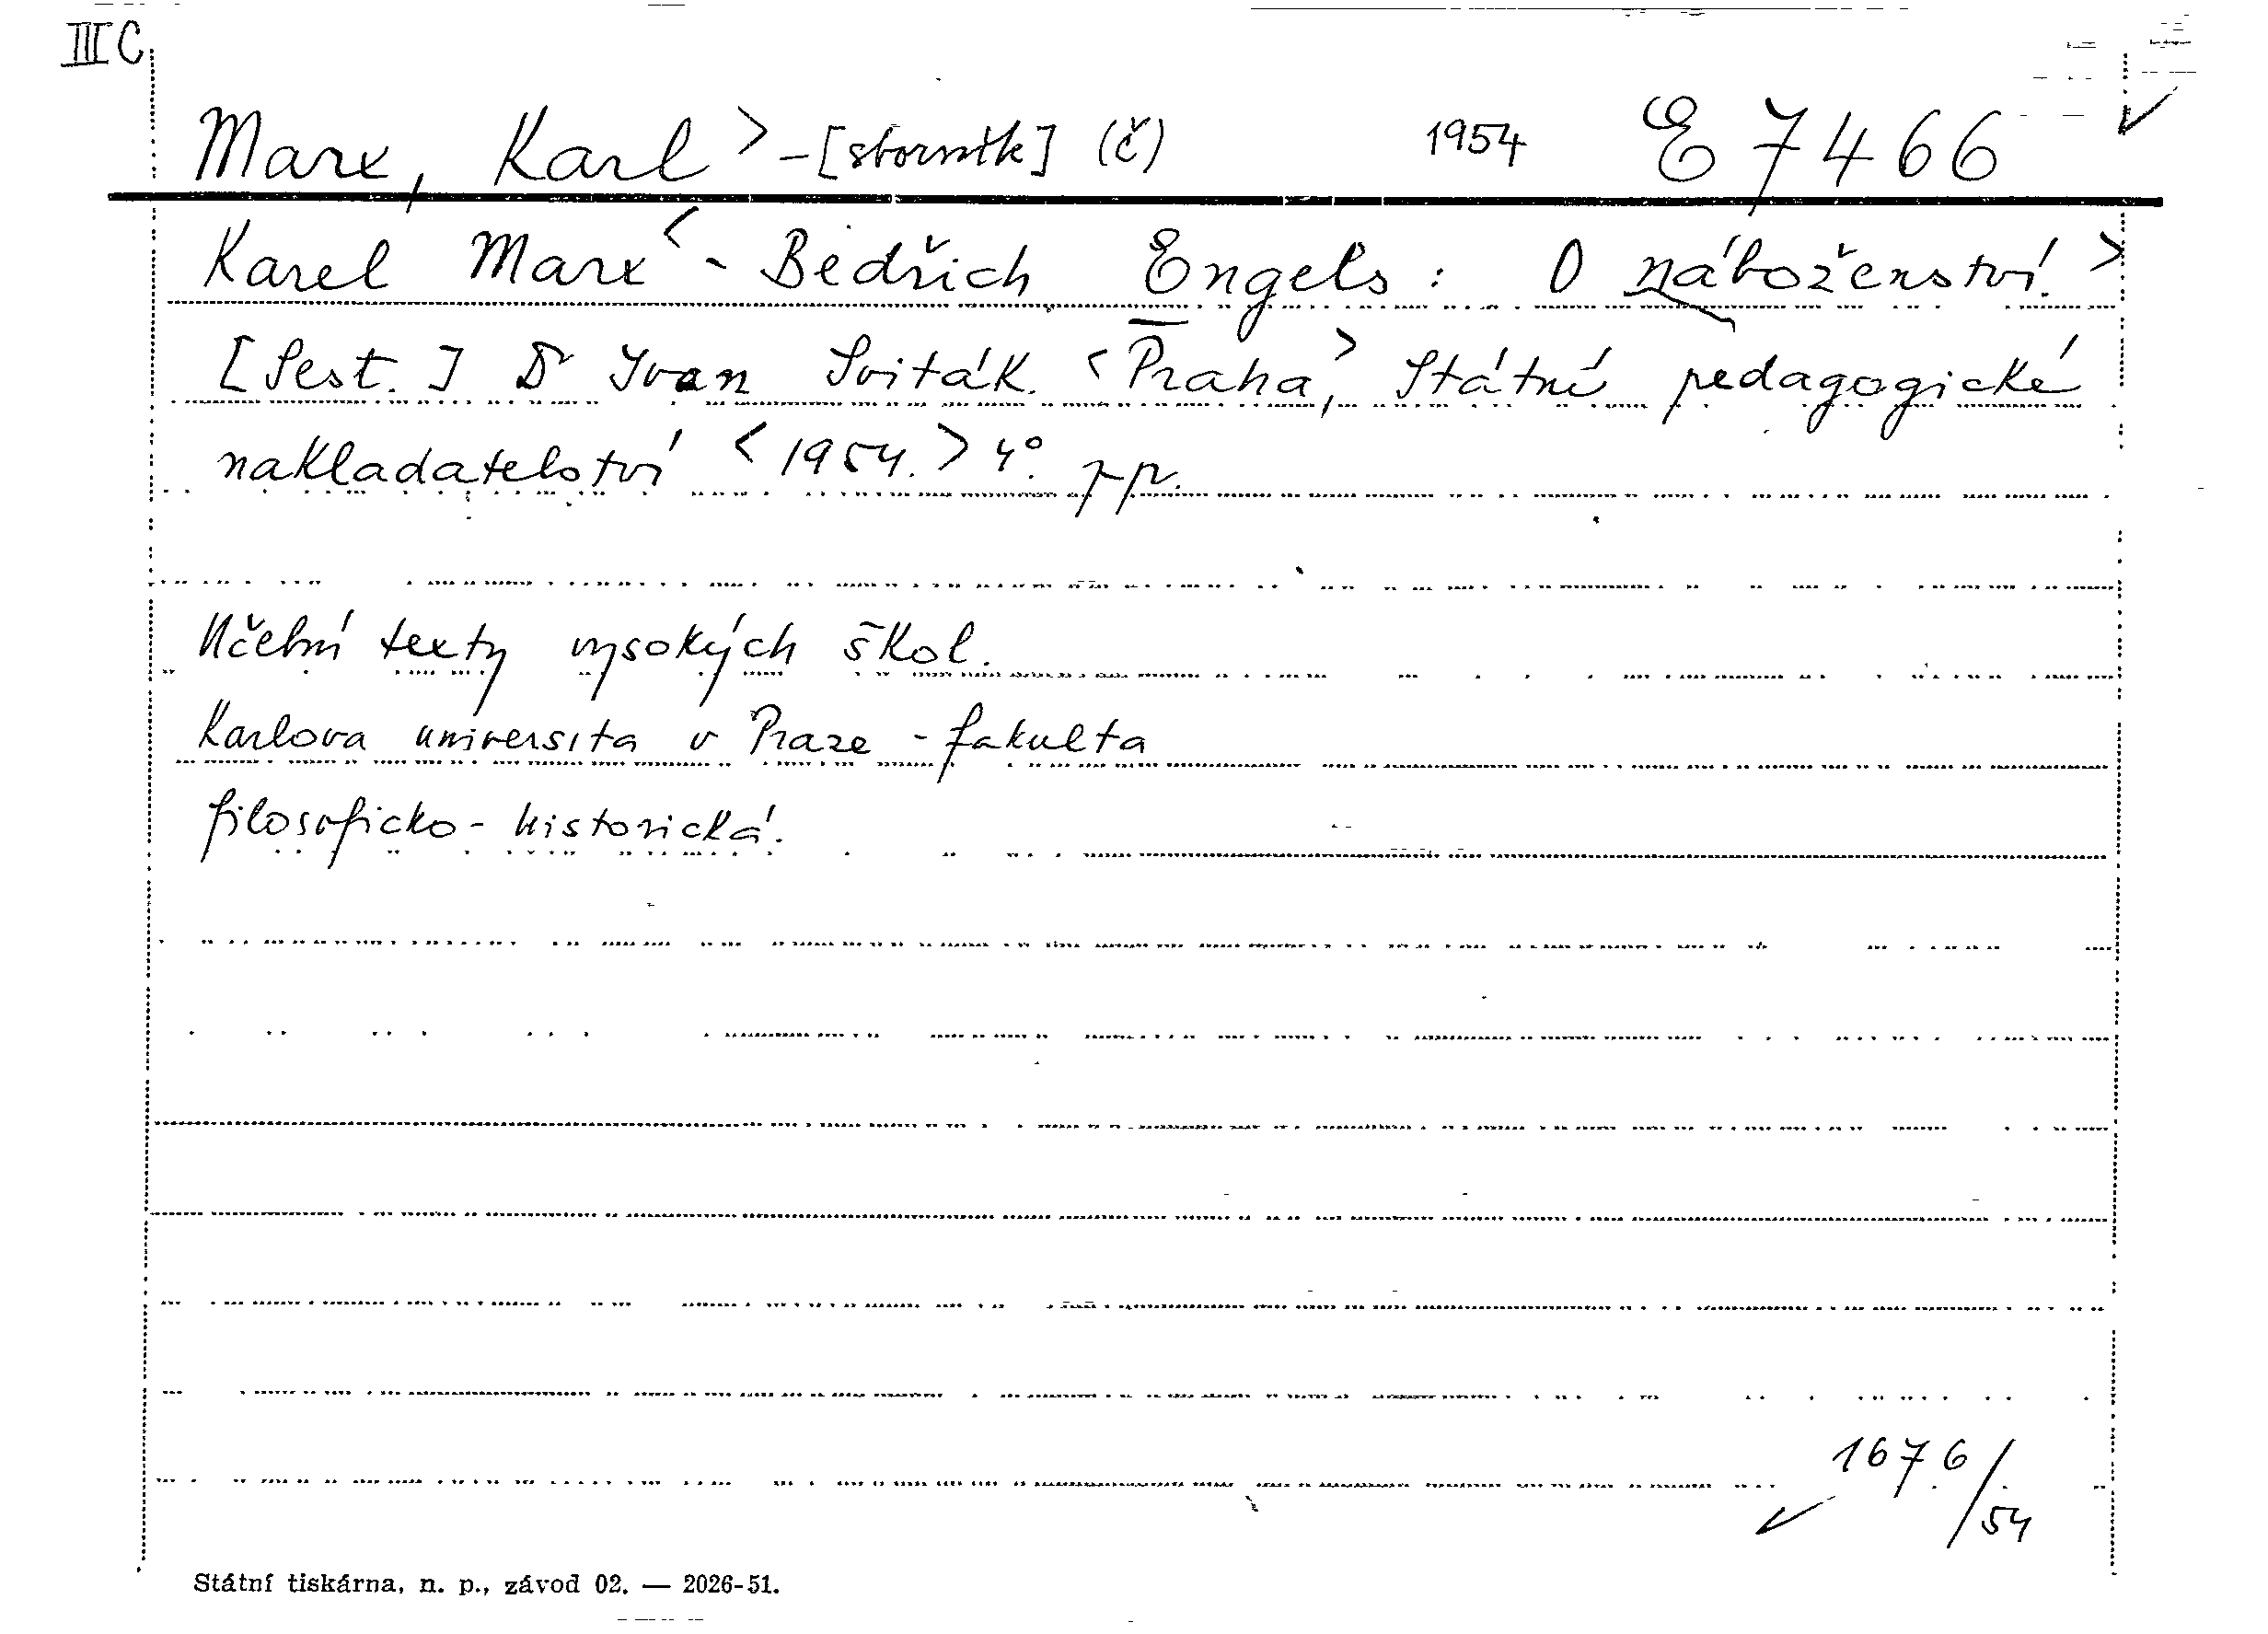 III C
Marx, Karl > - [sborník] (č) 1954 E 7466 ✓
Karel Marx < - Bedřich Engels : O náboženství. >
[Sest.] Dr Ivan Sviták. < Praha, > Státní pedagogické
nakladatelství < 1954. > 4°.
Učební texty vysokých škol.
Karlova universita v Praze - fakulta
filosoficko - historická.
✓ 1676/54
Státní tiskárna, n. p., závod 02. — 2026-51.